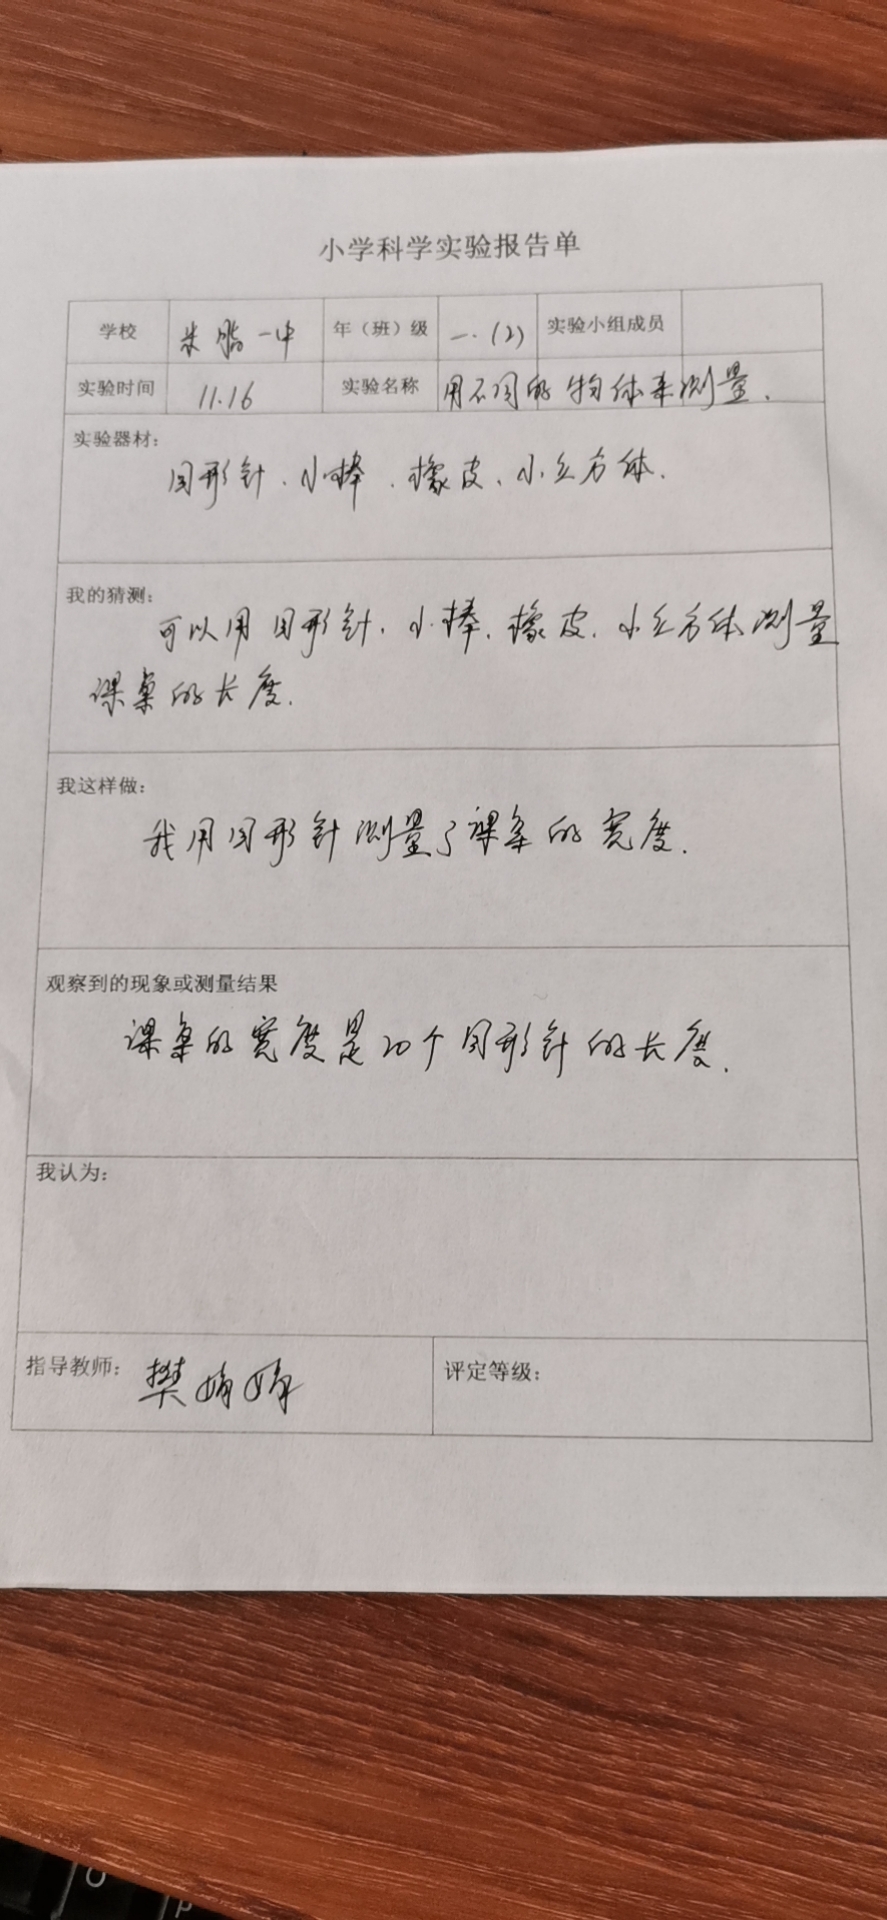 小学科学实验报告单
学校 米脂一中 年（班）级 一.(2) 实验小组成员
实验时间 11.16 实验名称 用不同的物体来测量.
实验器材：
回形针、小棒、橡皮、小立方体.
我的猜测：
可以用回形针、小棒、橡皮、小立方体测量
课桌的长度.
我这样做：
我用回形针测量了课桌的宽度.
观察到的现象或测量结果
课桌的宽度是20个回形针的长度.
我认为：
指导教师： 樊娟娟 评定等级：